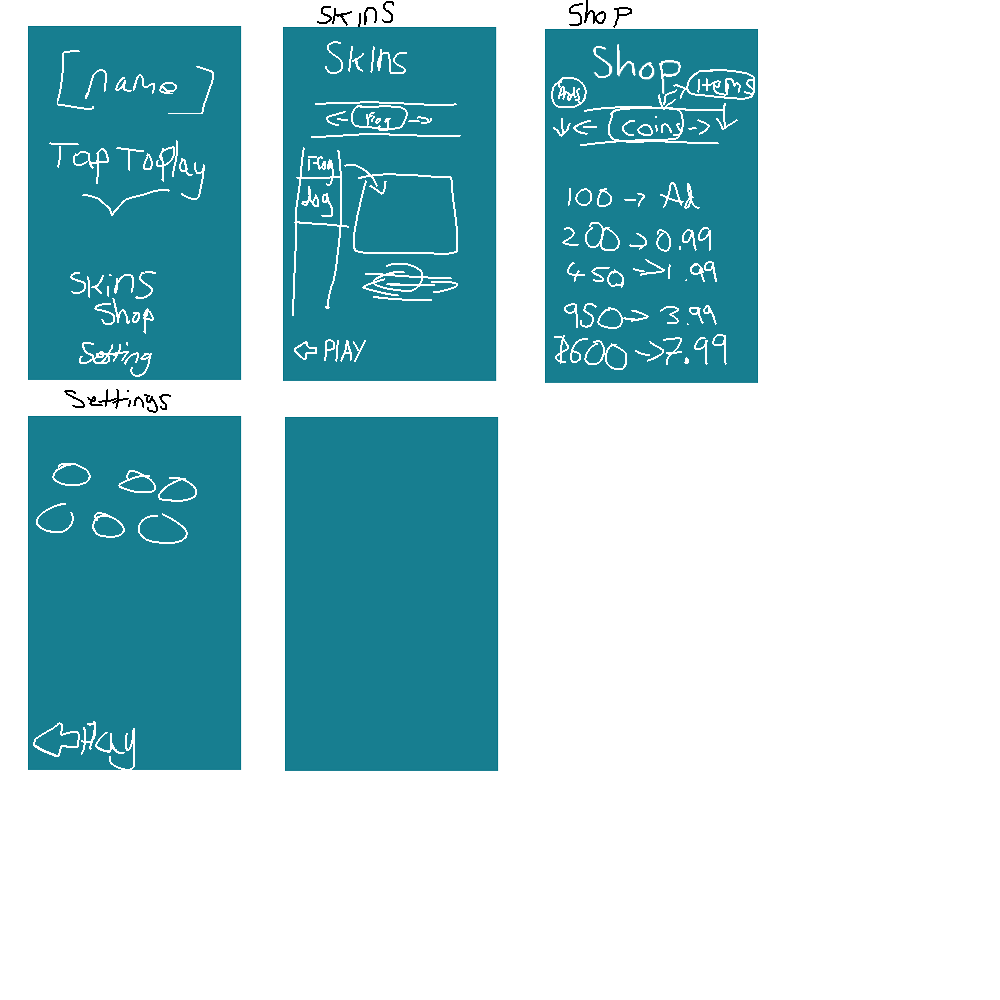 SKINS
Shop
[Name]
Tap To Play
Skins
Shop
Setting
Skins
Frog
Frog
dog
PLAY
Shop
Ads
Items
Coins
100 → Ad
200 → 0.99
450 → 1.99
950 → 3.99
1600 → 7.99
Settings
Play